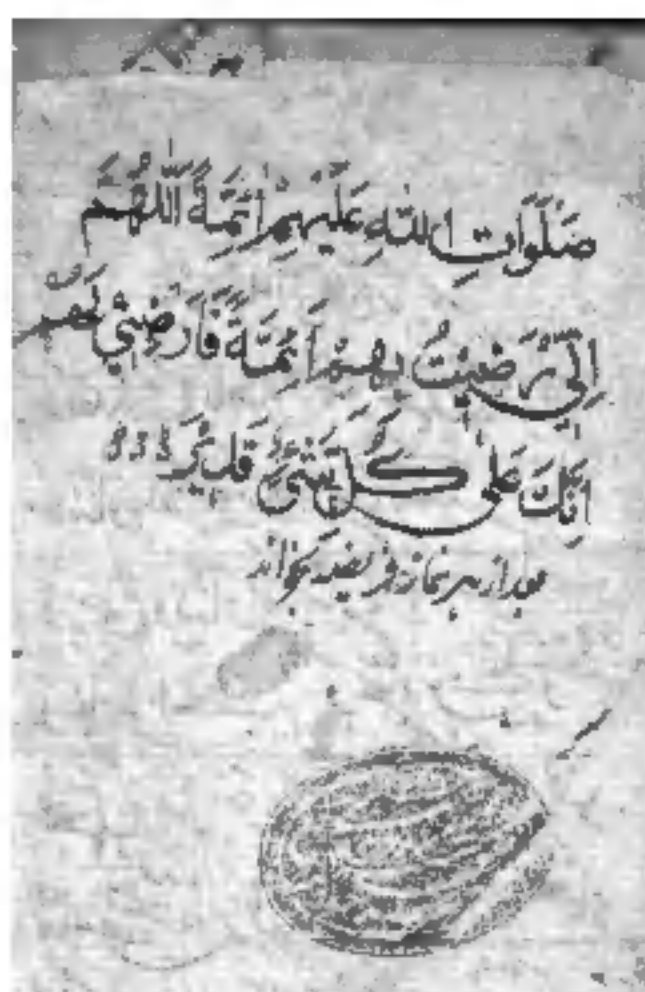 صَلَوَاتِ اللهِ عَلَيْهِمْ اَئِمَّةً اَللّٰهُمَّ
اِنِّي رَضِيْتُ بِهِمْ اَئِمَّةً فَارْضِنِيْ لَهُمْ
اِنَّكَ عَلٰى كُلِّ شَيْءٍ قَدِيْرٌ
بعد از هر نماز فریضه بخواند